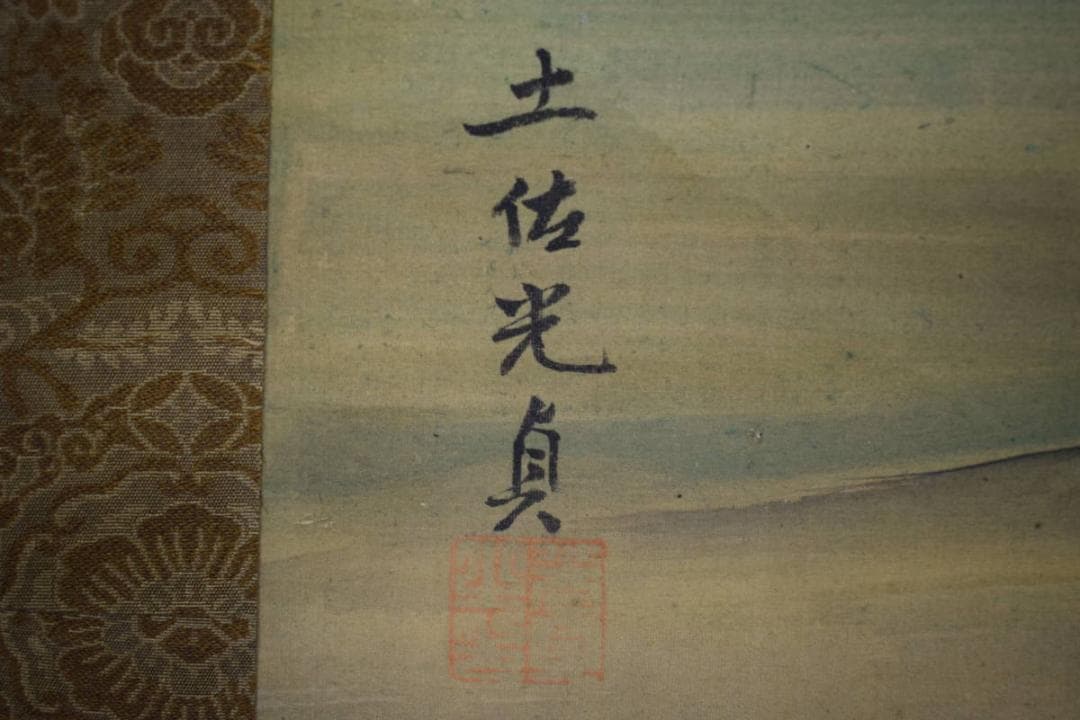 土佐光貞